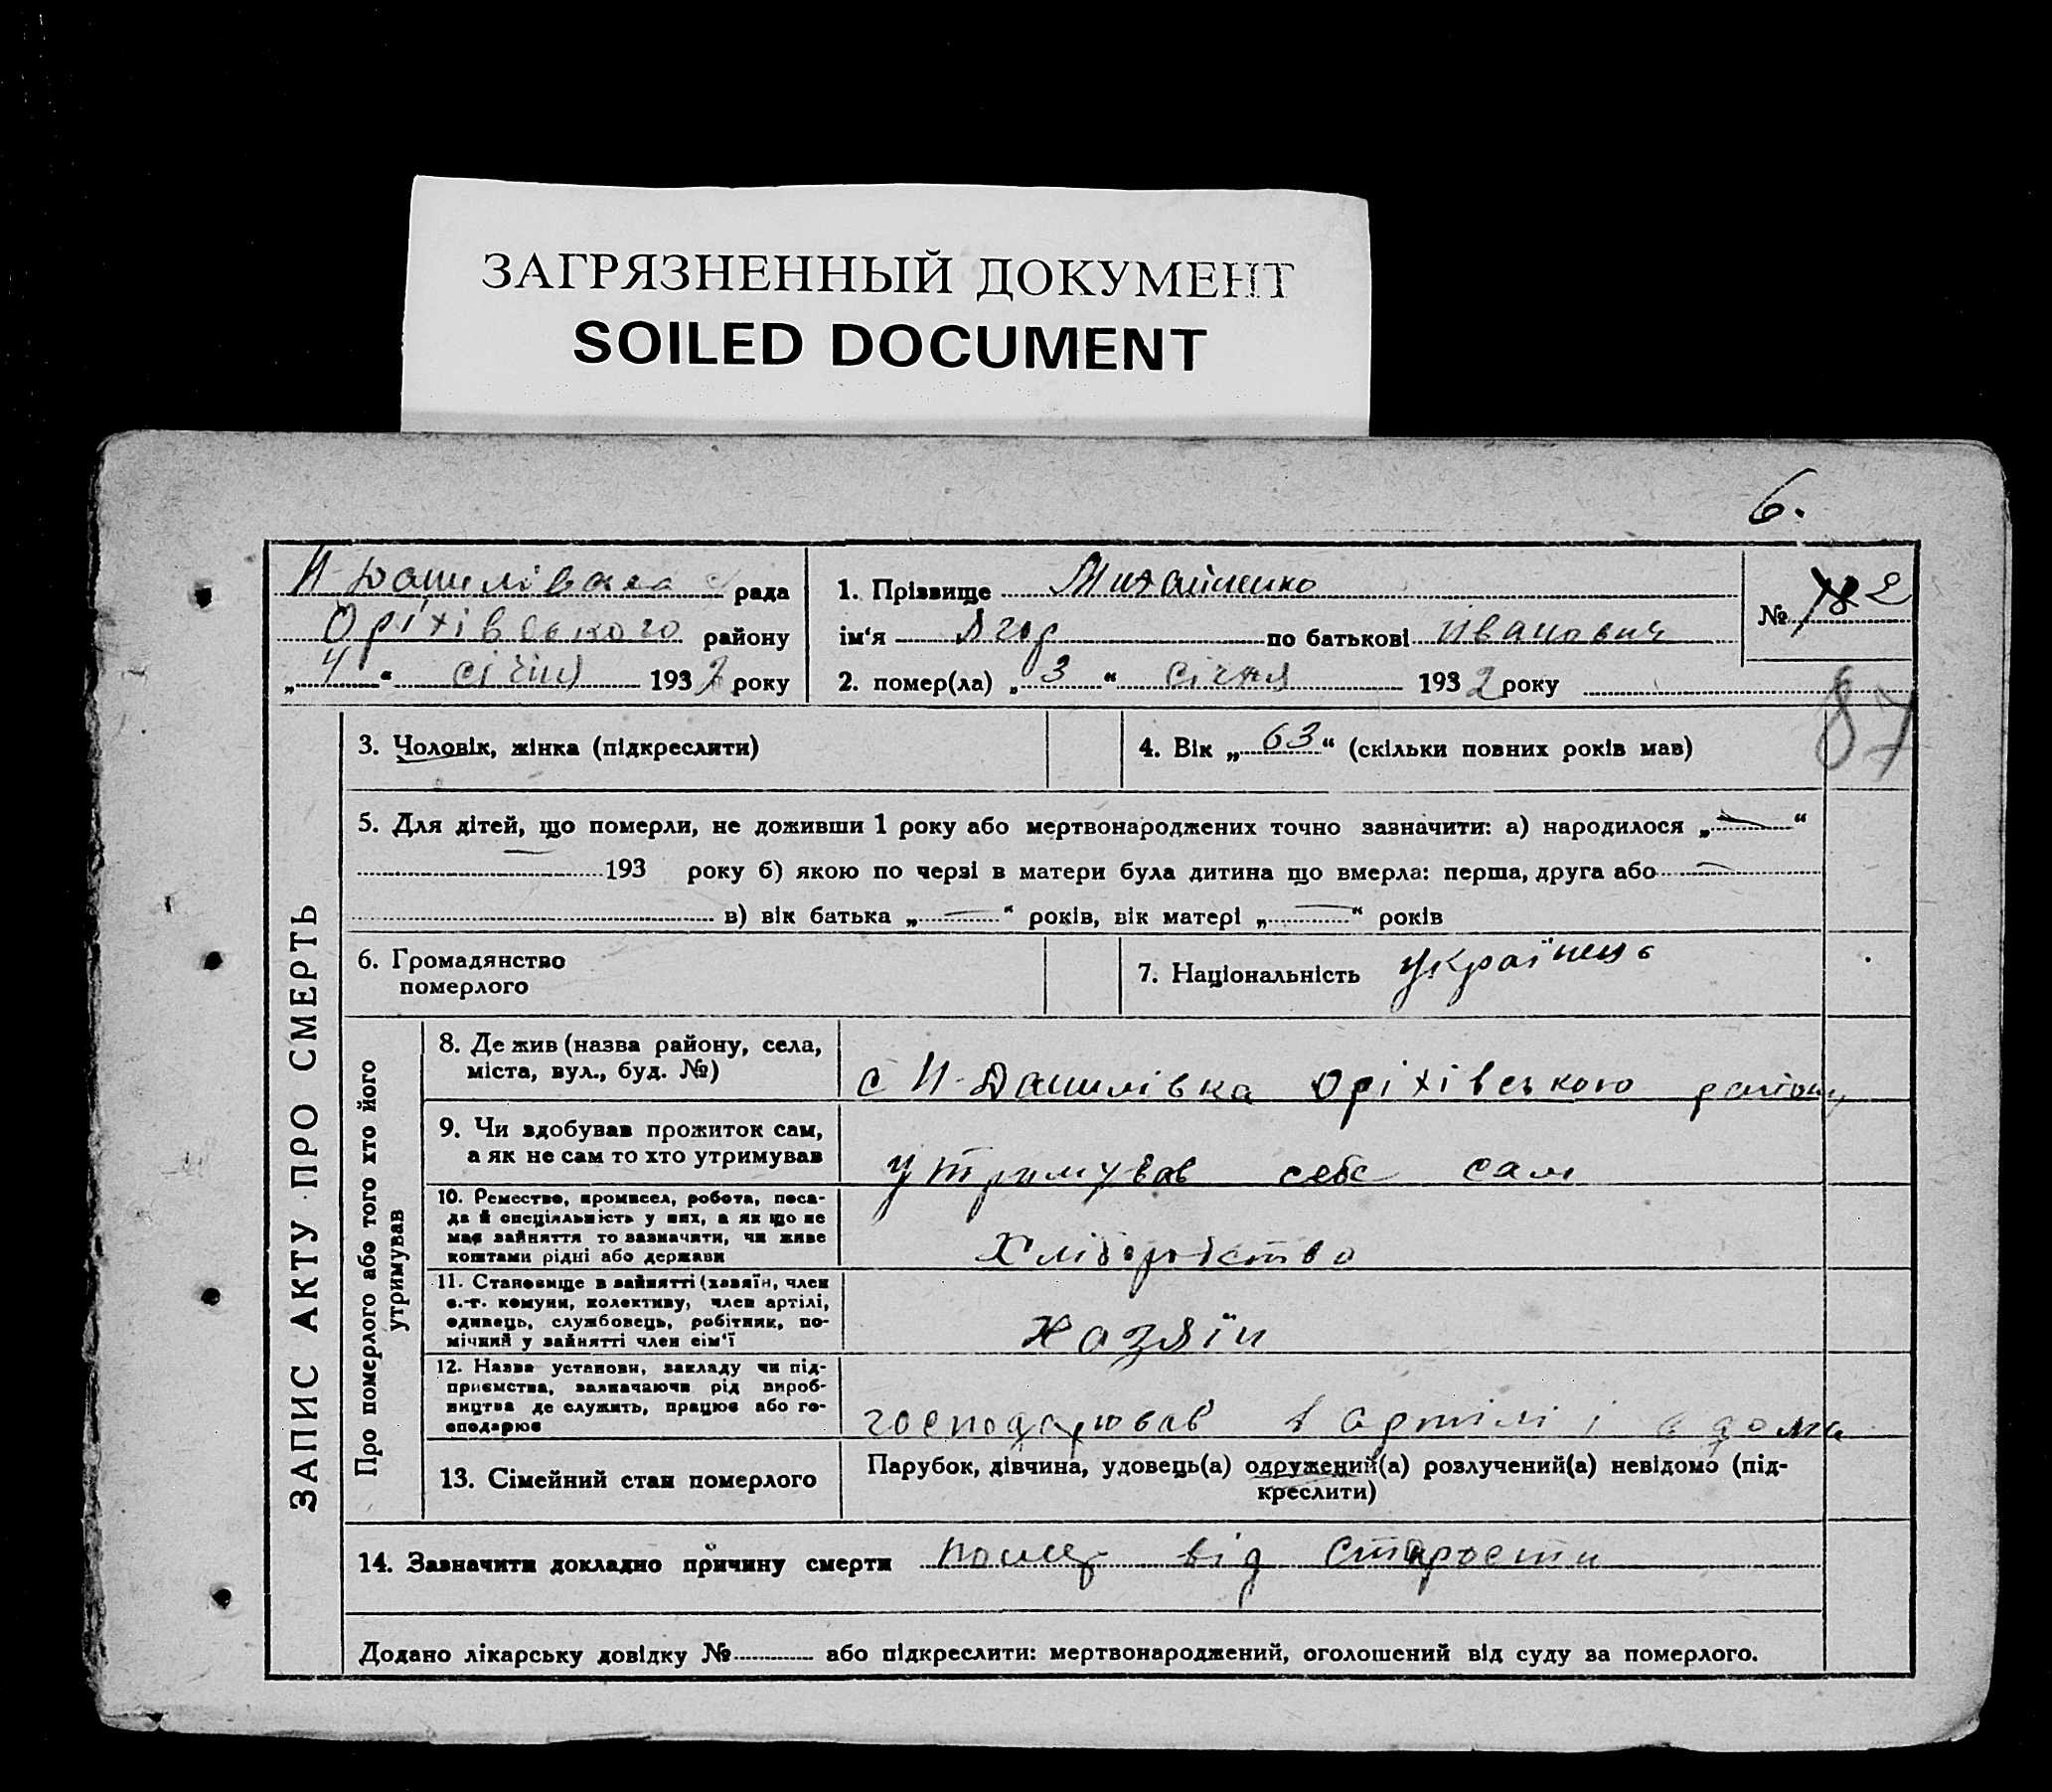 ЗАГРЯЗНЕННЫЙ ДОКУМЕНТ
SOILED DOCUMENT
6.
Н-Данилівська рада
Оріхівського району
„ 4 “ січня 1932 року
1. Прізвище Михайленко
ім‘я Ягор по батькові Иванович
2. помер(ла) „ 3 “ січня 1932 року
№ 2
87
ЗАПИС АКТУ ПРО СМЕРТЬ
3. Чоловік, жінка (підкреслити)
4. Вік „ 63 “ (скільки повних років мав)
5. Для дітей, що померли, не доживши 1 року або мертвонароджених точно зазначити: а) народилося „ — “
— 193 року б) якою по черзі в матери була дитина що вмерла: перша, друга або —
в) вік батька „ — “ років, вік матері „ — “ років
6. Громадянство
померлого
7. Національність Українець
Про померлого або того хто його
утримував
8. Де жив (назва району, села,
міста, вул., буд. №)
с Н-Данилівка Оріхівського району
9. Чи здобував прожиток сам,
а як не сам то хто утримував
Утримував себе сам
10. Ремество, промисел, робота, поса-
да й спеціяльність у них, а як що не
має зайняття то зазначити, чи живе
коштами рідні або держави
Хліборобство
11. Становище в зайнятті (хазяїн, член
с.-г. комуни, колективу, член артілі,
одинець, службовець, робітник, по-
мічний у зайнятті член сім‘ї
Хазяїн
12. Назва установи, закладу чи під-
приємства, зазначаючи рід вироб-
ництва де служить, працює або го-
сподарює
господарював в артілі і в дома
13. Сімейний стан померлого
Парубок, дівчина, удовець(а) одружений(а) розлучений(а) невідомо (під-
креслити)
14. Зазначити докладно причину смерти помер від старости
Додано лікарську довідку № або підкреслити: мертвонароджений, оголошений від суду за померлого.